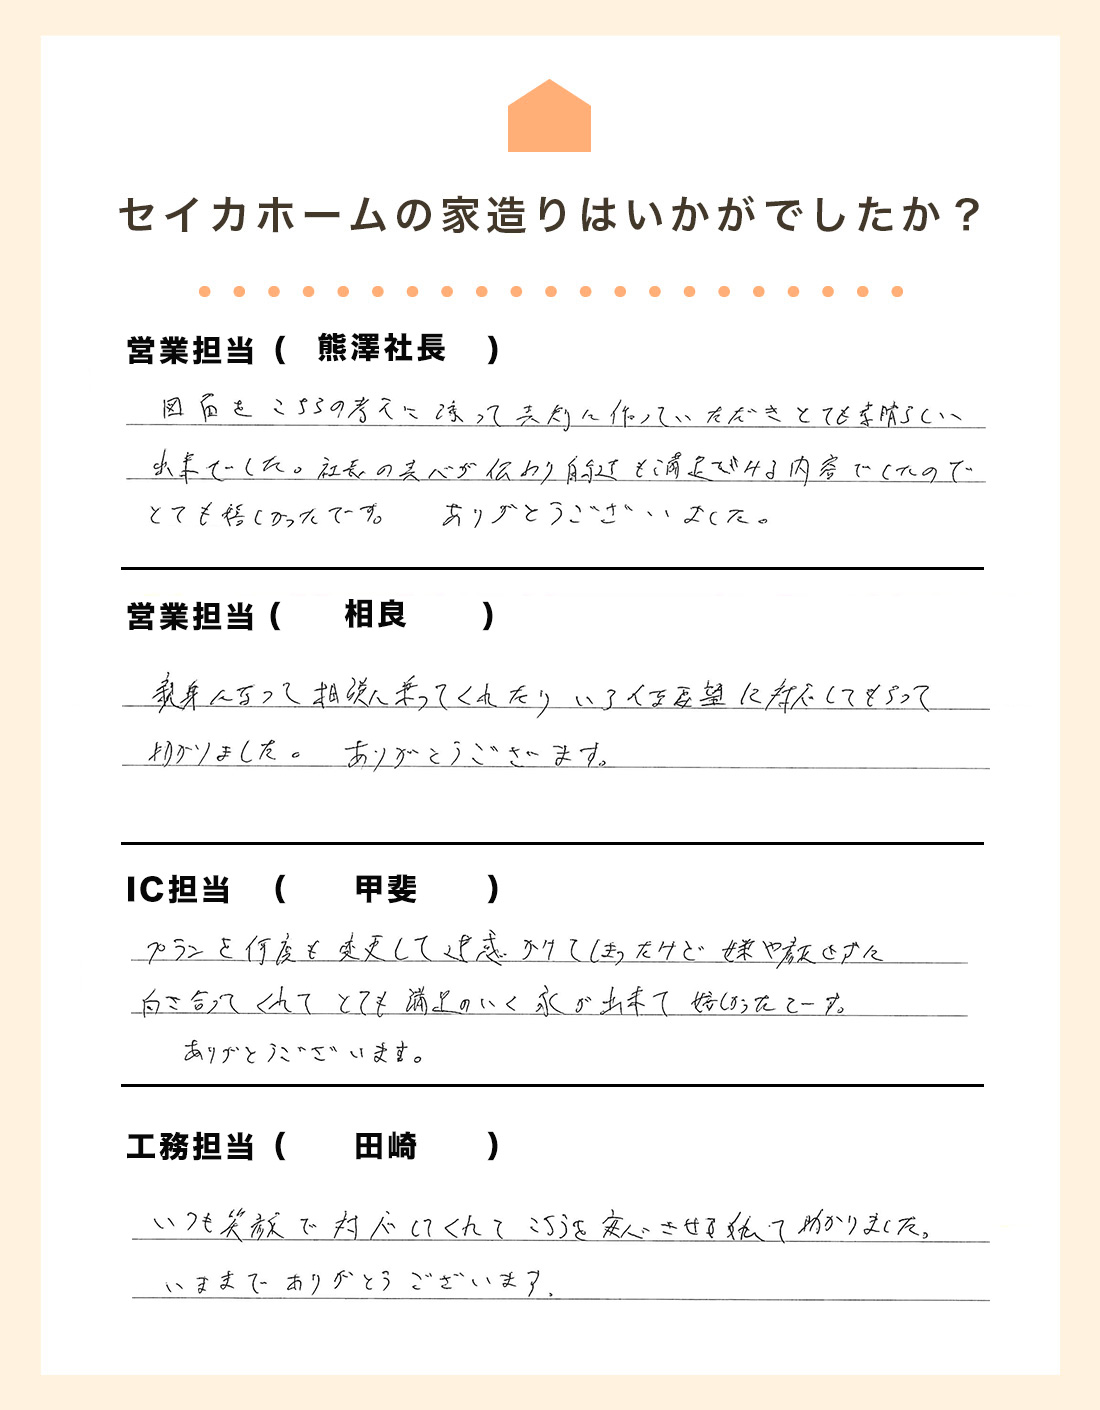 セイカホームの家造りはいかがでしたか？
営業担当 ( 熊澤社長 )
図面をこちらの考えに添って真剣に作っていただきとても素晴らしい
出来でした。社長の真心が伝わり自分達も満足できる内容でしたので
とても嬉しかったです。 ありがとうございました。
営業担当 ( 相良 )
親身になって相談に乗ってくれたり いろいろな要望に対応してもらって
助かりました。 ありがとうございます。
IC担当 ( 甲斐 )
プランを何度も変更して迷惑かけてしまったけど嫌や顔せずに
向き合ってくれてとても満足のいく家が出来て嬉しかったです。
ありがとうございます。
工務担当 ( 田崎 )
いつも笑顔で対応してくれて こちらを安心させる 助かりました。
いままでありがとうございます.